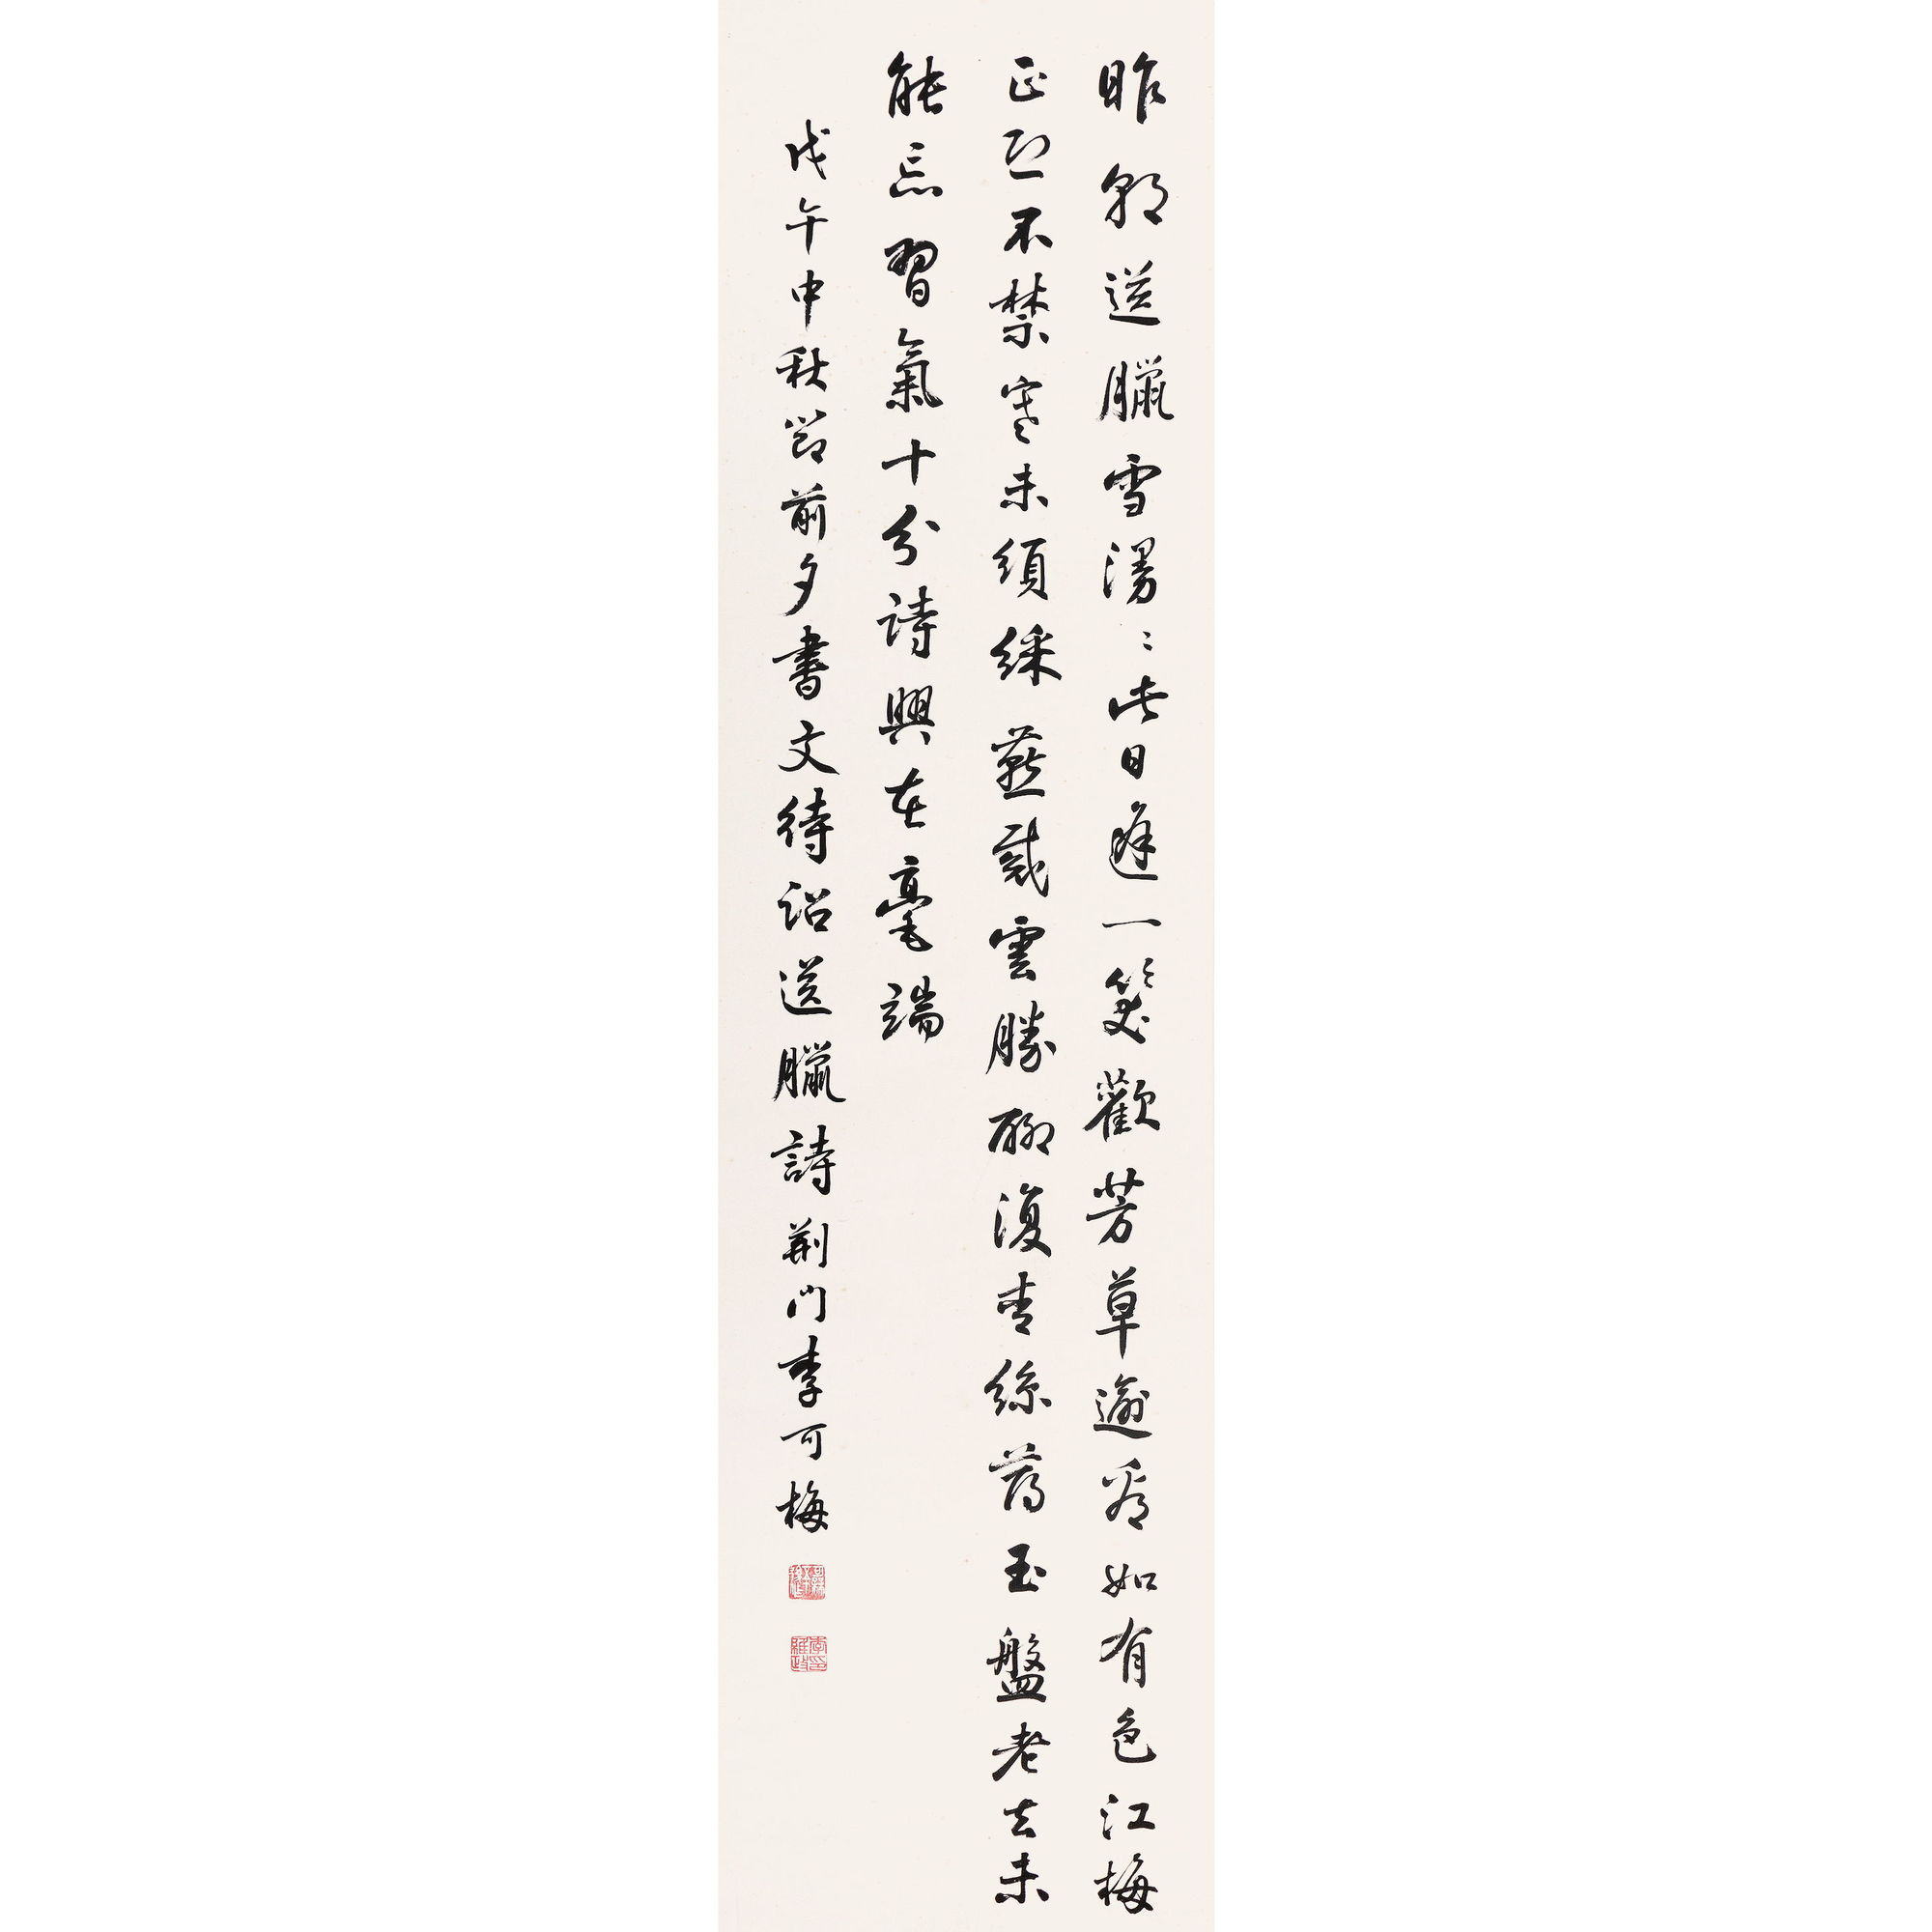 昨朝送臘雪漫〻此日逢一笑歡芳草逾看如有色江梅
正恐不禁寒未須綵燕裁雲勝聊復青絲薦玉盤老去未
能忘習氣十分詩興在毫端
戊午中秋節前夕書文待詔送臘詩荊門李可梅